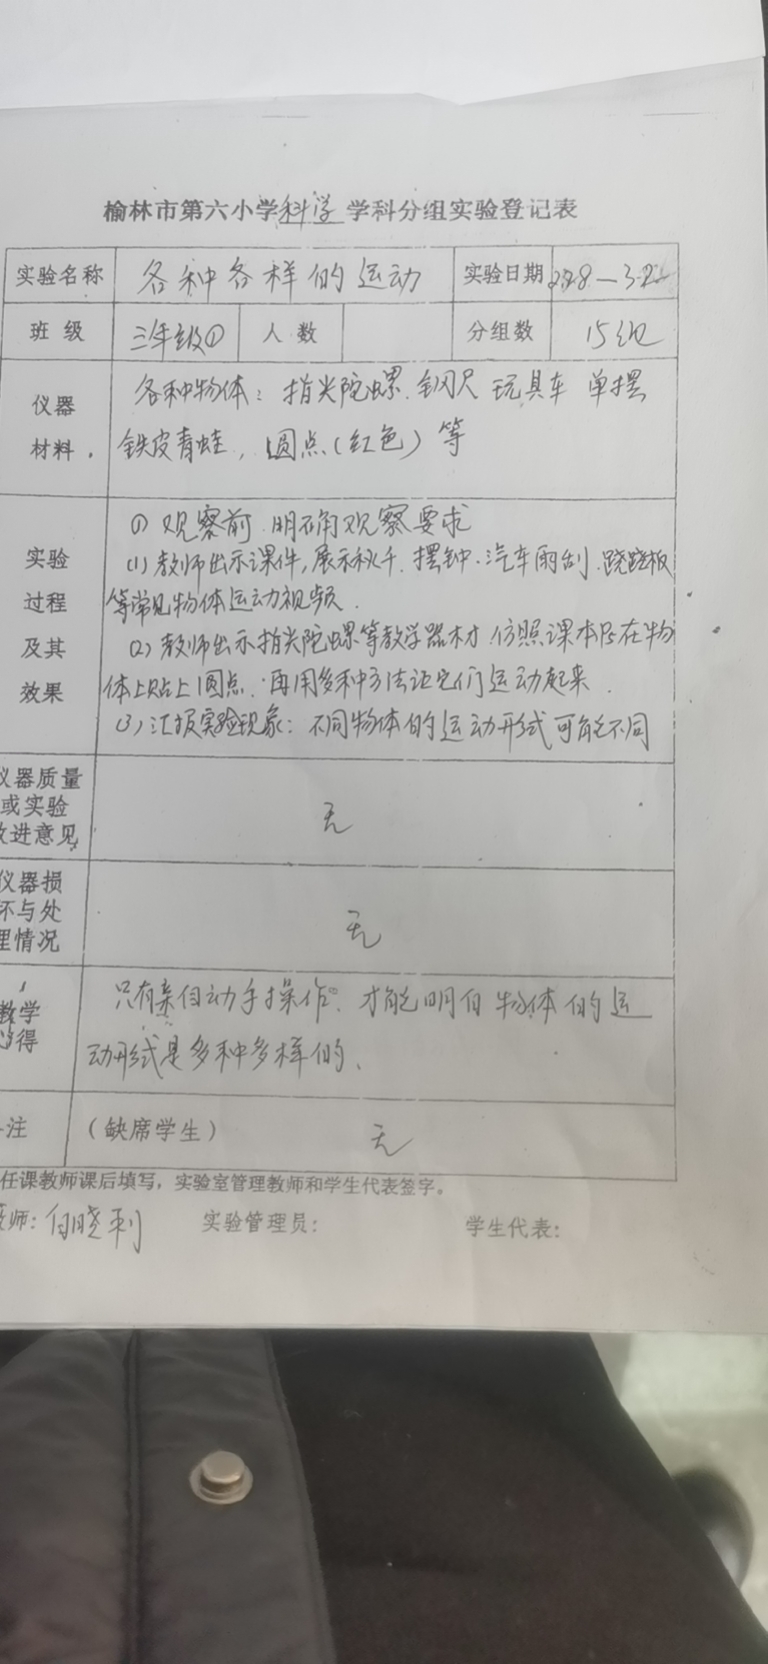 榆林市第六小学科学学科分组实验登记表
实验名称 各种各样的运动 实验日期
班 级 三年级① 人 数 分组数 15组
仪器 各种物体：指尖陀螺.钢尺 玩具车 单摆
材料 铁皮青蛙，圆点（红色）等
① 观察前.明确观察要求
实验 (1)教师出示课件,展示秋千.摆钟.汽车雨刮.跷跷板
过程 等常见物体运动视频.
及其 (2)教师出示指尖陀螺等教学器材.仿照课本P5在物
效果 体上贴上圆点.再用多种方法让它们运动起来.
(3)汇报实验现象：不同物体的运动形式可能不同
仪器质量
或实验 无
改进意见
仪器损
坏与处 无
理情况
教学 只有亲自动手操作.才能明白物体的运
心得 动形式是多种多样的.
注 （缺席学生） 无
任课教师课后填写，实验室管理教师和学生代表签字。
教师: 晓利 实验管理员: 学生代表: